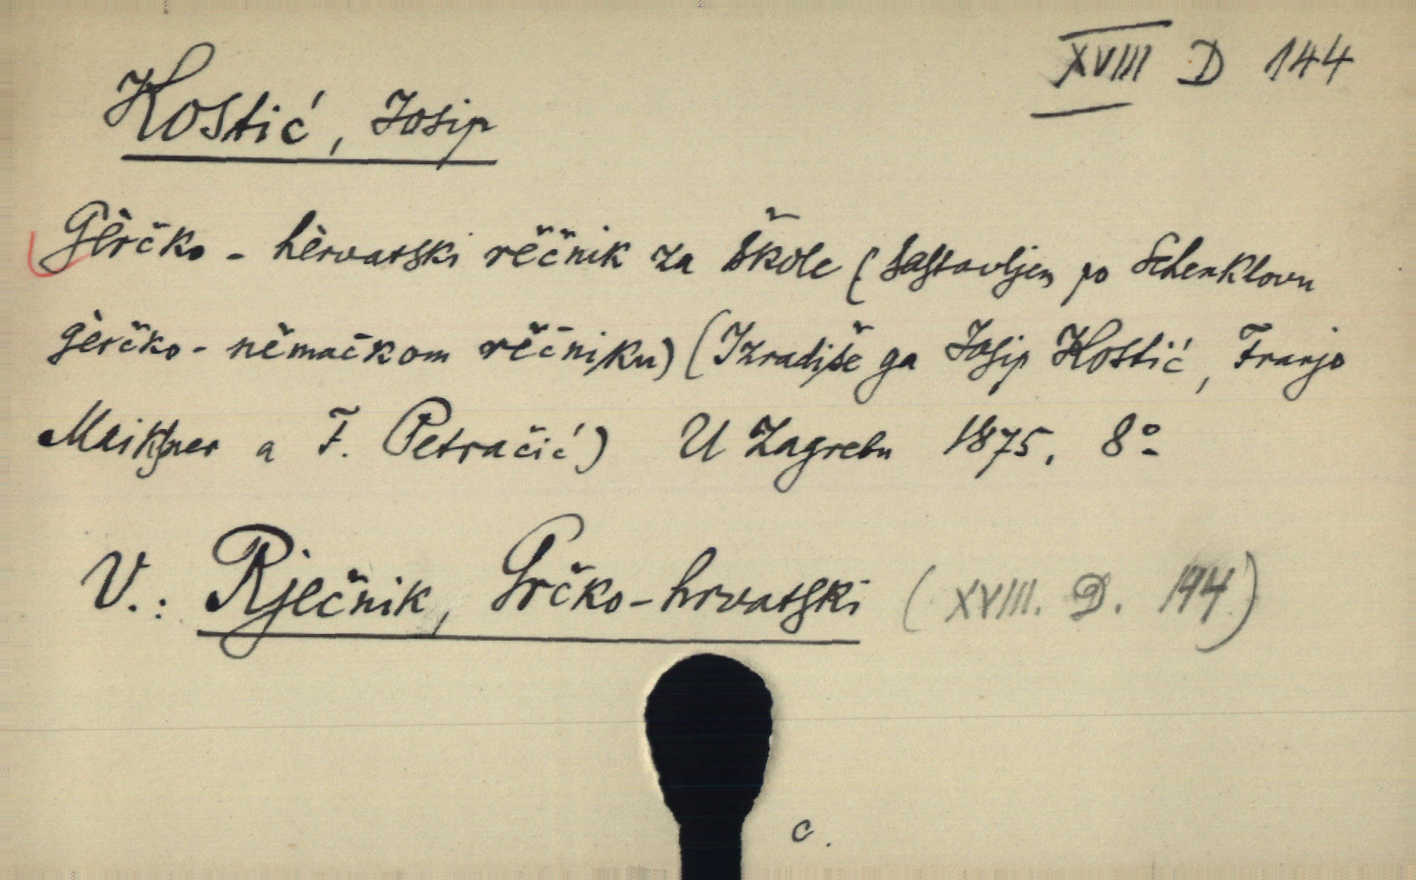 XVIII D 144
Kostić, Josip
Gèrčko - hèrvatski rěčnik za škole (sastavljen po Schenklovu
gèrčko - němačkom rěčniku) (Izradiše ga Josip Kostić, Franjo
Maixner a F. Petračić) U Zagrebu 1875. 8º
V.: Rječnik, Grčko-hrvatski (XVIII. D. 144)
c.